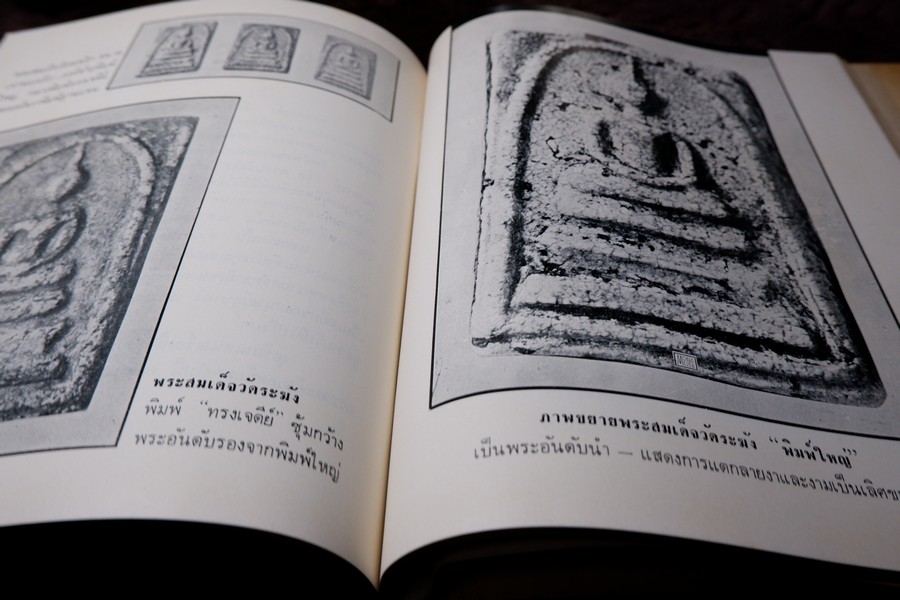 พระสมเด็จวัดระฆัง
พิมพ์ “ทรงเจดีย์” ซุ้มกว้าง
พระอันดับรองจากพิมพ์ใหญ่
ภาพขยายพระสมเด็จวัดระฆัง “พิมพ์ใหญ่”
เป็นพระอันดับนำ — แสดงการแตกลายงาและงามเป็นเลิศ